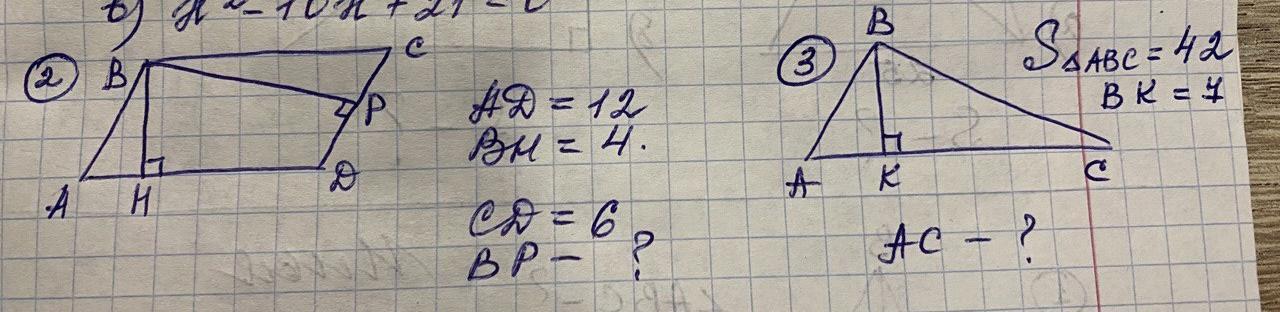 б) x² - 10x + 21 = 0
②
B
C
P
A
H
D
AD = 12
BH = 4.
CD = 6
BP - ?
③
B
A
K
C
S△ABC = 42
BK = 7
AC - ?